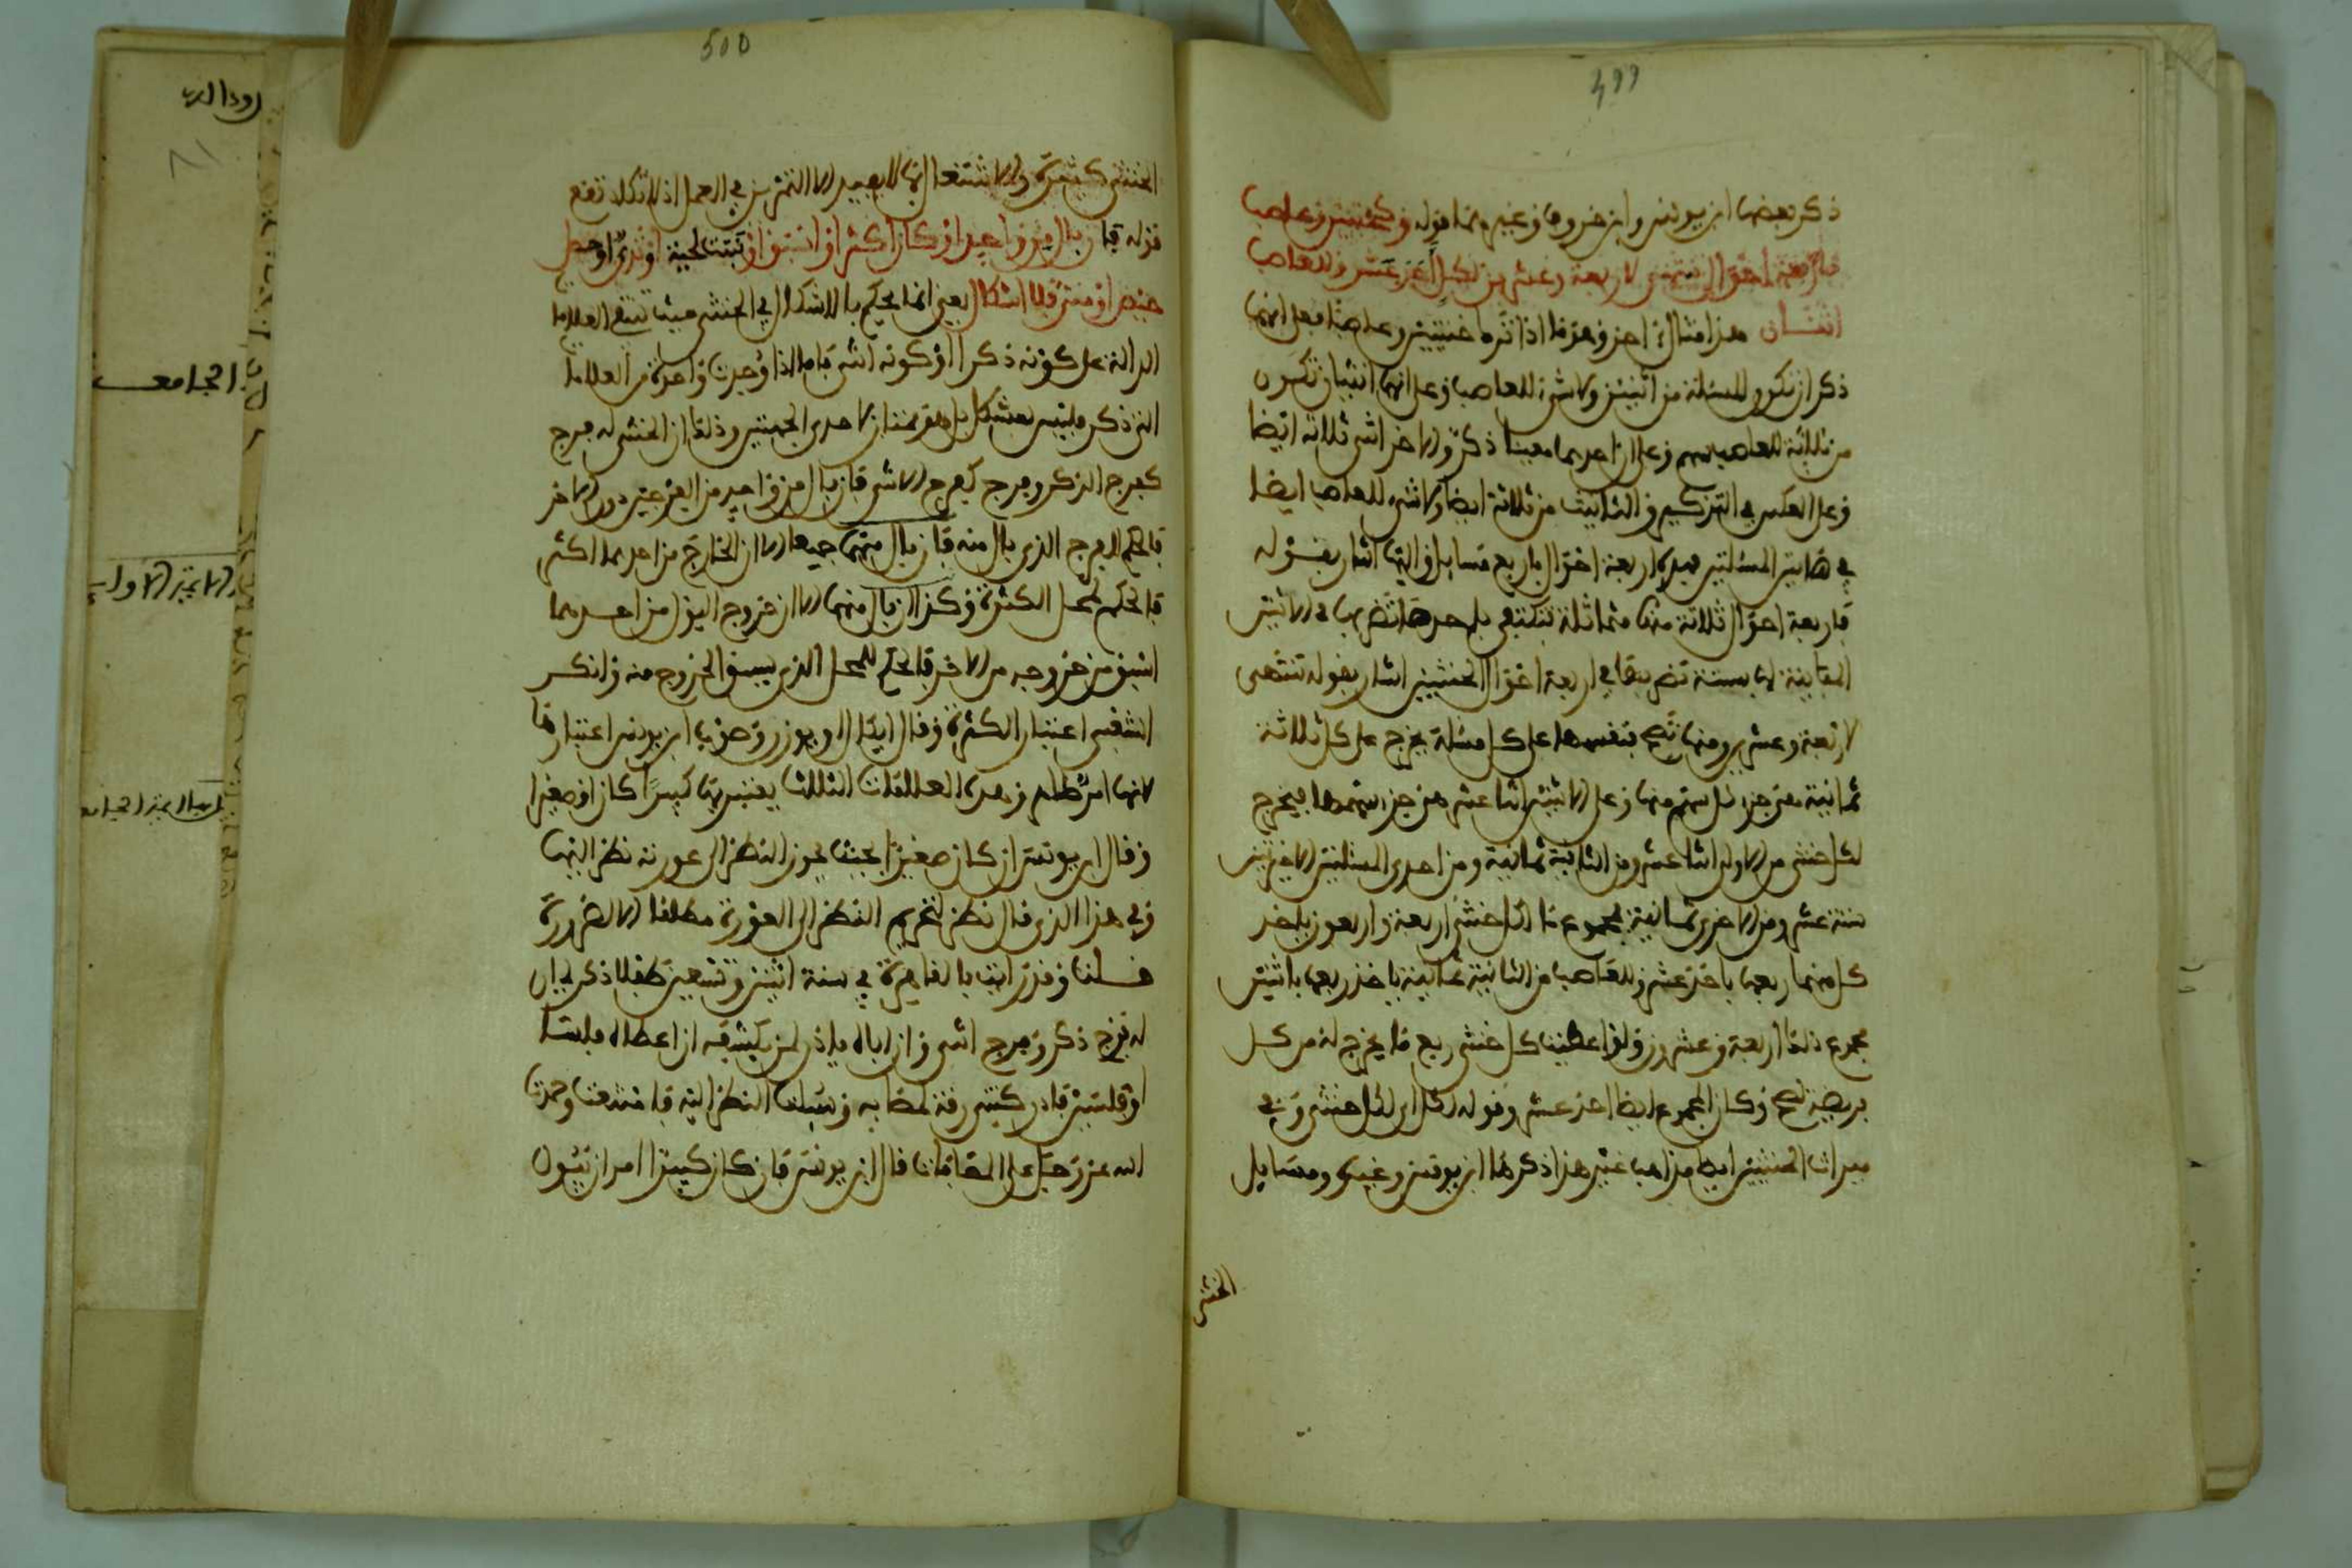 499
ذكر بعضها ابن يونس وابن خروف وغيره وهذا قوله وكخنثيين وعاصب
فأربعة أحوال تنتهي لأربعة وعشرين لكل أحد عشر وللعاصب
اثنان هذا مثال آخر وهو ما إذا ترك خنثيين وعاصبا فعلى أنهما
ذكران تكون المسئلة من اثنين ولا شيء للعاصب وعلى أنهما أنثيان تكون
من ثلاثة للعاصب سهم وعلى أن أحدهما معينا ذكر والآخر أنثى ثلاثة أيضا
وعلى العكس في التذكير والتأنيث من ثلاثة أيضا ولا شيء للعاصب أيضا
في هاتين المسئلتين فهذه أربعة أحوال بأربع مسائل وإليها أشار بقوله
فأربعة أحوال ثلاثة منها متماثلة تكتفي بأحدها تضربها في الاثنين
المباينة لها بستة تضربها في أربعة أحوال الخنثيين أشار بقوله تنتهي
لأربعة وعشرين ومنها تصح بقسمها على كل مسئلة يخرج على كل ثلاثة
ثمانية هي جزء كل سهم منها وعلى الاثنين اثنا عشر هي جزء سهمها فيخرج
لكل خنثى من الأولى اثنا عشر ومن الثانية ثمانية ومن إحدى المسئلتين الأخيرتين
ستة عشر ومن الأخرى ثمانية مجموع ما لكل خنثى أربعة وأربعون يأخذ
كل منهما ربعها بأحد عشر وللعاصب من الثانية ثمانية يأخذ ربعها باثنين
مجموع ذلك أربعة وعشرون ولو أعطيت كل خنثى ربع ما يخرج له من كل
فريضة لصح وكان المجموع أيضا أحد عشر وقوله لكل أي لكل خنثى وفي
ميراث الخنثيين أيضا مذاهب غير هذا ذكرها ابن يونس وغيره ومسائل
الخنثى
500
الخنثى كثيرة والاشتغال بها لا يفيد إلا التمرين في العمل إذ لا تكاد تقع
قوله فإن بال من واحد أو كان أكثر أو أسبق أو نبتت لحية أو ثدي أو حصل
حيض أو مني فلا إشكال يعني إنما يحكم بالإشكال في الخنثى حيث تنتفي العلامة
الدالة على كونه ذكرا أو كونه أنثى فأما إذا وجدت واحدة من العلامات
التي ذكر فليس بمشكل بل هو ممتاز لأحدى الجهتين وذلك أن الخنثى له فرج
كفرج الذكر وفرج كفرج الأنثى فإن بال من واحد من الفرجين دون الآخر
فالحكم للفرج الذي بال منه فإن بال منهما جميعا إلا أن الخارج من أحدهما أكثر
فالحكم لمحل الكثرة وكذا إن بال منهما إلا أن خروج البول من أحدهما
أسبق من خروجه من الآخر فالحكم للمحل الذي يسبق الخروج منه وأنكر
الشعبي اعتبار الكثرة وقال أيكال أو يوزن وصوب ابن يونس اعتبارها
لأنها أمر ظاهر وهذه العلامات الثلاث يعتبر بها كبيرا كان أو صغيرا
وقال ابن يونس إن كان صغيرا بحيث يجوز النظر إلى عورته نظر إليها
وفي هذا الذي قال نظر لتحريم النظر إلى العورة مطلقا إلا لضرورة
قلت وقد رأيت بالقاهرة في سنة اثنين وتسعين طفلا ذكر لي أن
له فرج ذكر وفرج أنثى وأن أباه يأذن لمن يكشفه إن أعطاه فلسا
أو فلسين فأدركتني رفقة لمضا به وسألت النظر إليه فامتنعت وحمدت
الله عز وجل على المعافات قال ابن يونس فإن كان كبيرا أمر أن يبول
الجامعـ